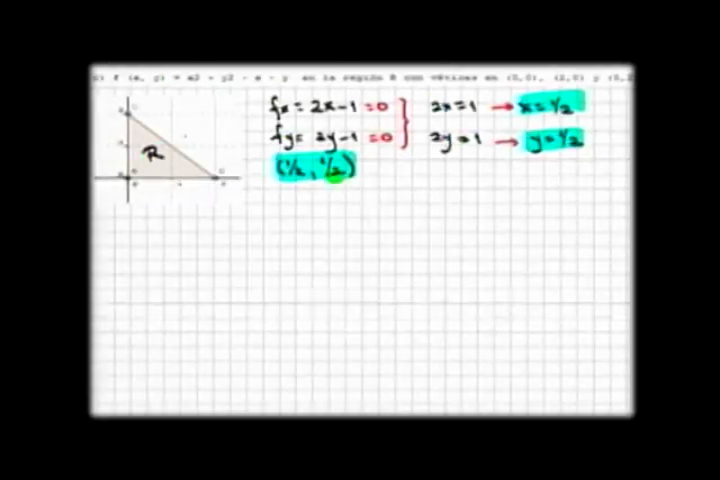 f (x, y) = x2 + y2 - x - y en la región R con vértices en (0,0), (2,0) y (0,2
R
fx = 2x-1 =0 } 2x=1 → x=1/2
fy = 2y-1 =0 } 2y=1 → y=1/2
(1/2, 1/2)